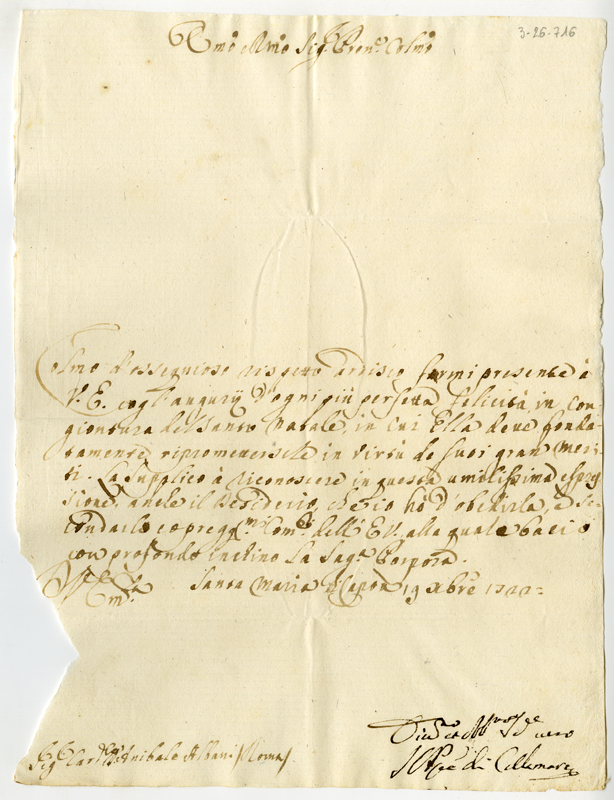 3-26-716
Em̃o e Rm̃o Sig.r Pron.e Colmo
Colmo d'ossequioso rispetto ardisco farmi presente à
V. E. cogl'augurij d'ogni più perfetta felicità, in con
giontura del Santo Natale, in cui Ella deve fonda
tamente ripromettersele in virtù de suoi gran meri
ti. La supplico à riconoscere in questa umilissima espres
sione, anche il desiderio, che io hò d'obedirla, e se
condarlo co pregg.mi Com.di dell'E.V. alla quale bacio
con profondo inchino La Sag.a Porpora.
Santa Maria Capoa 19 Xbre
Sig.r Card.le Anibale Albani (Roma)
Div.mo et Obb.mo Se.re vero
Il P.pe di Cellamare